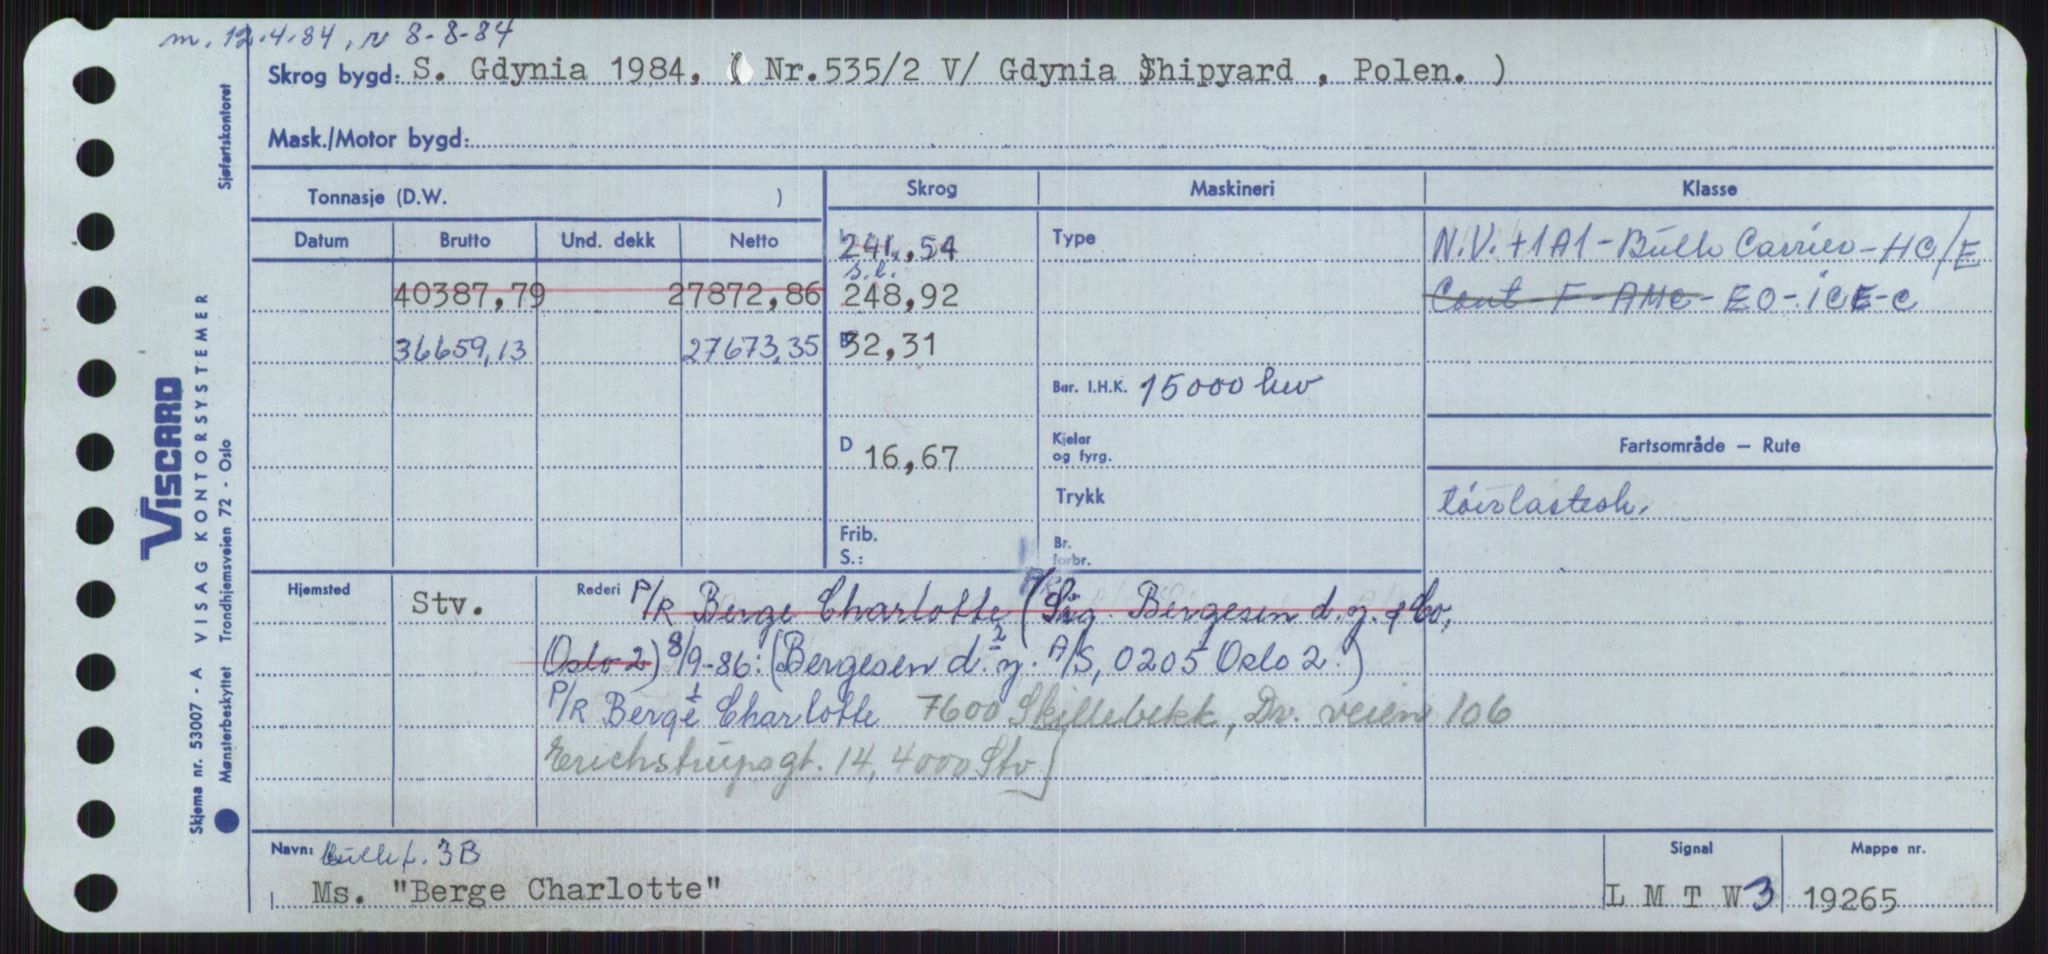 m. 12.4.84, N 8-8-84
Skrog bygd: S. Gdynia 1984, ( Nr.535/2 V/ Gdynia Shipyard , Polen. )
Mask./Motor bygd:
Tonnasje (D.W. ) Skrog Maskineri Klasse
Datum Brutto Und. dekk Netto 241,54 Type N.V. +1A1 - Bulk Carrier - HC/E
s.l.
40387,79 27872,86 248,92 Cont - F - AMC - EO - ICE-C
36659,13 27673,35 B 32,31
Bør. I.H.K. 15000 hkv
D 16,67 Kjeler og fyrg. Fartsområde — Rute
Trykk tørrlastesk.
Frib.
S.: Br. forbr.
Hjemsted Stv. Rederi P/R Berge Charlotte (Sig. Bergesen d.y. & Co,
Oslo 2) 8/9-86: (Bergesen d.y. A/S, 0205 Oslo 2.) 2
P/R Berge Charlotte 1 7600 Skillebekk, Dr. veien 106
Erichstrupsgt. 14, 4000 Stv
Navn: Bulk f. 3B Signal Mappe nr.
Ms. "Berge Charlotte" L M T W 3 19265
VISCARD
Skjema nr. 53007 - A VISAG KONTORSYSTEMER Sjøfartskontoret
Mønsterbeskyttet Trondhjemsveien 72 - Oslo